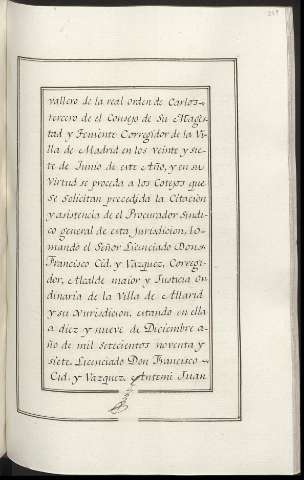 vallero de la real orden de Carlos
tercero de el Consejo de Su Mages
tad y Teniente Corregidor de la Vi
lla de Madrid en los veinte y sie
te de Junio de este Año, y en su
Virtud se proceda a los Cotejos que
se solicitan precedida la Citacion
y asistencia de el Procurador Sindi
co general de esta Jurisdicion, lo
mando el Señor Licenciado Don
Francisco Cid. y Vazquez, Corregi
dor, Alcalde maior y Justicia or
dinaria de la Villa de Allariz
y su Jurisdicion, estando en ella
a diez y nueve de Diciembre a
ño de mil setecientos noventa y
siete. Licenciado Don Francisco
Cid. y Vazquez. Antemi Juan